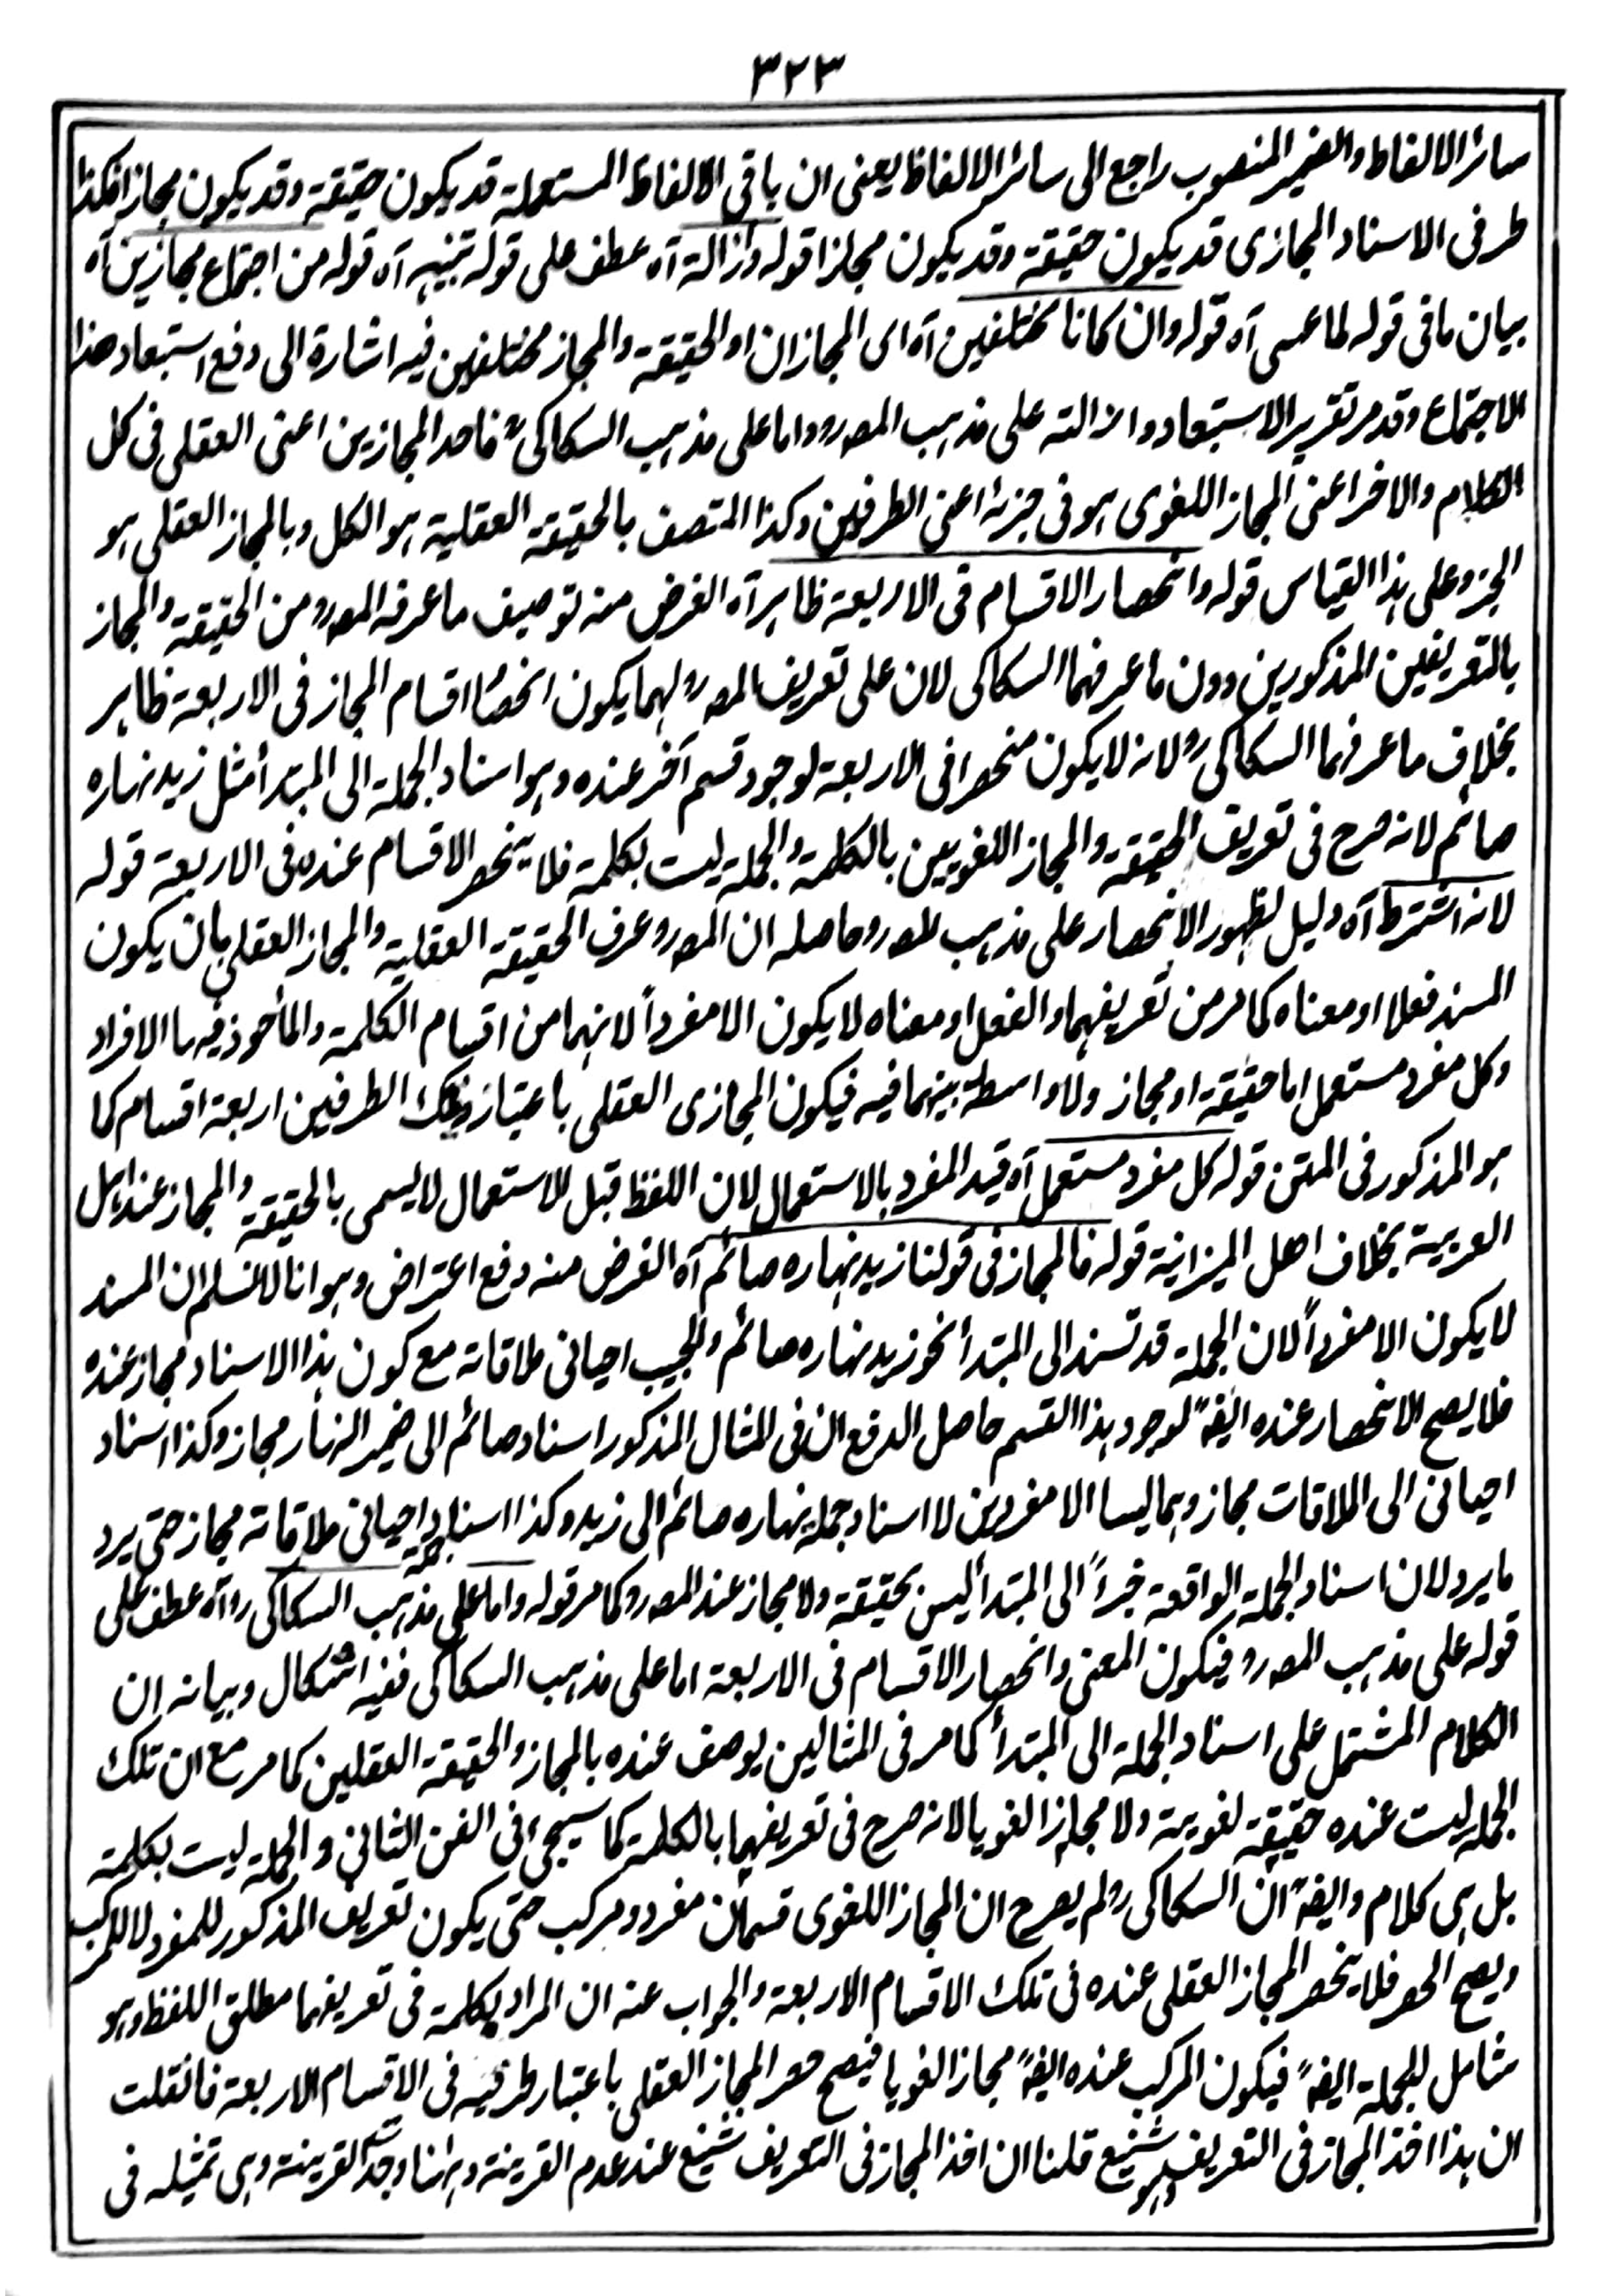 ٣٢٣
سائر الالفاظ والضمير المنصوب راجع الى سائر الالفاظ يعنى ان باقى الالفاظ المستعملة قد يكون حقيقة وقد يكون مجازا فكذا
طرفى الاسناد المجازى قد يكون حقيقة وقد يكون مجازا قوله وازالة آه عطف على قوله تنبيه آه قوله من اجتماع مجازين آه
بيان ما فى قوله لما عسى آه قوله وان كانا مختلفين آه اى المجازان او الحقيقة والمجاز مختلفين فيه اشارة الى دفع استبعاد هذا
الاجتماع وقد مر تقرير الاستبعاد وازالته على مذهب المصر واما على مذهب السكاكىؒ فاحد المجازين اعنى العقلى فى كل
الكلام والاخر اعنى المجاز اللغوى هو فى جزئه اعنى الطرفين وكذا المتصف بالحقيقة العقلية هو الكل وبالمجاز العقلى هو
الجزو على هذا القياس قوله وانحصار الاقسام فى الاربعة ظاهر آه الغرض منه توصيف ما عرفه المصر من الحقيقة والمجاز
بالتعريفين المذكورين دون ما عرفهما السكاكى لان على تعريف المصر لهما يكون انحصار اقسام المجاز فى الاربعة ظاهر
بخلاف ما عرفهما السكاكى ر لانه لا يكون منحصرا فى الاربعة لوجود قسم آخر عنده وهو اسناد الجملة الى المبتدأ مثل زيد نهاره
صائم لانه صرح فى تعريف الحقيقة والمجاز اللغويين بالكلمة والجملة ليست بكلمة فلا ينحصر الاقسام عنده فى الاربعة قوله
لانه اشترط آه دليل لظهور الانحصار على مذهب المصر وحاصله ان المصر عرف الحقيقة العقلية والمجاز العقلى بان يكون
المسند فعلا او معناه كما مر من تعريفهما والفعل او معناه لا يكون الا مفرداً لانهما من اقسام الكلمة والمأخوذ فيها الافراد
وكل مفرد مستعمل اما حقيقة او مجاز ولا واسطة بينهما فيه فيكون المجازى العقلى باعتبار ذينك الطرفين اربعة اقسام كما
هو المذكور فى المتن قوله كل مفرد مستعمل آه قيد المفرد بالاستعمال لان اللفظ قبل الاستعمال لا يسمى بالحقيقة والمجاز عند اهل
العربية بخلاف اهل الميزانية قوله فالمجاز فى قولنا زيد نهاره صائم آه الغرض منه دفع اعتراض وهو انا لا نسلم ان المسند
لا يكون الا مفرداً لان الجملة قد تسند الى المبتدأ نحو زيد نهاره صائم والحبيب احيانى ملاقاته مع كون هذا الاسناد مجاز عنده
فلا يصح الانحصار عنده ايضًا لوجود هذا القسم حاصل الدفع ان فى المثال المذكور اسناد صائم الى ضمير النهار مجاز وكذا اسناد
احيانى الى الملاقات مجاز وهما ليسا الا مفردين لا اسناد جملة نهاره صائم الى زيد وكذا اسناد جملة احيانى ملاقاته مجاز حتى يرد
ما يرد لان اسناد الجملة الواقعة خبراً الى المبتدأ ليس بحقيقة ولا مجاز عند المصر كما مر قوله واما على مذهب السكاكى ر آه عطف على
قوله على مذهب المصر فيكون المعنى وانحصار الاقسام فى الاربعة اما على مذهب السكاكى ففيه اشكال وبيانه ان
الكلام المشتمل على اسناد الجملة الى المبتدأ كما مر فى المثالين يوصف عنده بالمجاز والحقيقة العقلين كما مر مع ان تلك
الجملة ليست عنده حقيقة لغوية ولا مجازا لغويا لانه صرح فى تعريفهما بالكلمة كما سيجئ فى الفن الثانى والجملة ليست بكلمة
بل هى كلام وايضًا ان السكاكى ر لم يصرح ان المجاز اللغوى قسمان مفرد ومركب حتى يكون تعريف المذكور للمفرد لا للمركب
ويصح الحصر فلا ينحصر المجاز العقلى عنده فى تلك الاقسام الاربعة والجواب عنه ان المراد بكلمة فى تعريفهما مطلق اللفظ وهو
شامل للجملة ايضًا فيكون المركب عنده ايضًا مجازا لغويا فيصح حصر المجاز العقلى باعتبار طرفيه فى الاقسام الاربعة فان قلت
ان هذا اخذ المجاز فى التعريف وهو شنيع قلنا ان اخذ المجاز فى التعريف شنيع عند عدم القرينة وههنا وجدت القرينة وهى تمثيله فى